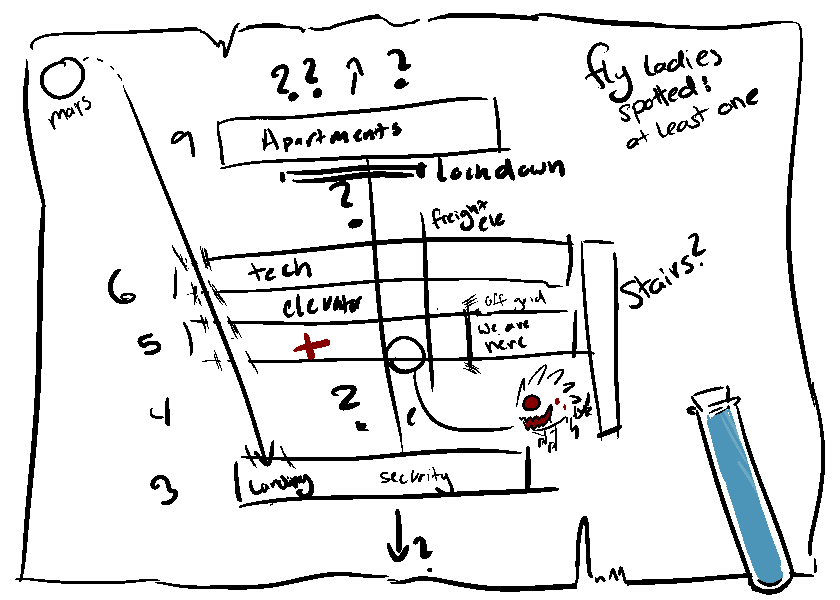 fly ladies
spotted:
at least one
mars
?? ↑ ?
9
Apartments
lockdown
?
freight
ele
Stairs?
6
tech
elevator
off grid
5
+
we are
here
4
?
3
Landing
security
↓?